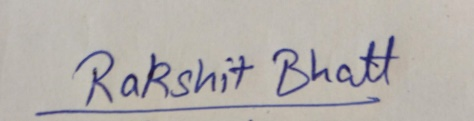 Rakshit Bhatt